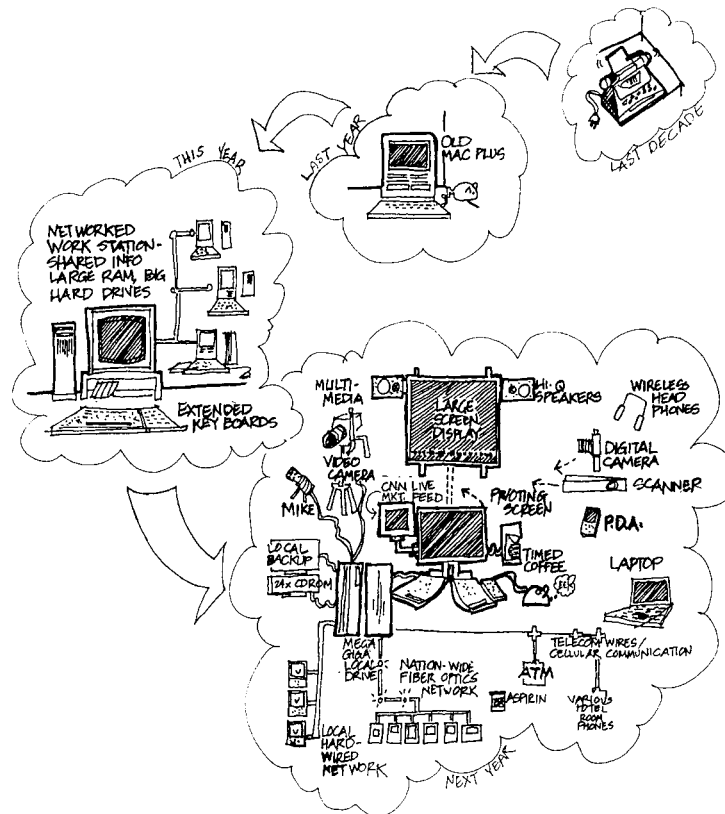 LAST DECADE
LAST YEAR
OLD
MAC PLUS
THIS YEAR
NETWORKED
WORK STATION-
SHARED INFO
LARGE RAM, BIG
HARD DRIVES
EXTENDED
KEY BOARDS
MULTI-
MEDIA
VIDEO
CAMERA
MIKE
LARGE
SCREEN
DISPLAY
HI-Q
SPEAKERS
WIRELESS
HEAD
PHONES
DIGITAL
CAMERA
SCANNER
CNN LIVE
MKT. FEED
PIVOTING
SCREEN
P.D.A.
TIMED
COFFEE
LAPTOP
LOCAL
BACKUP
24x CDROM
MEGA
GIGA
LOCAL
DRIVE
NATION-WIDE
FIBER OPTICS
NETWORK
TELECOM WIRES/
CELLULAR COMMUNICATION
ATM
ASPIRIN
VARIOUS
HOTEL
ROOM
PHONES
LOCAL
HARD-
WIRED
NETWORK
NEXT YEAR